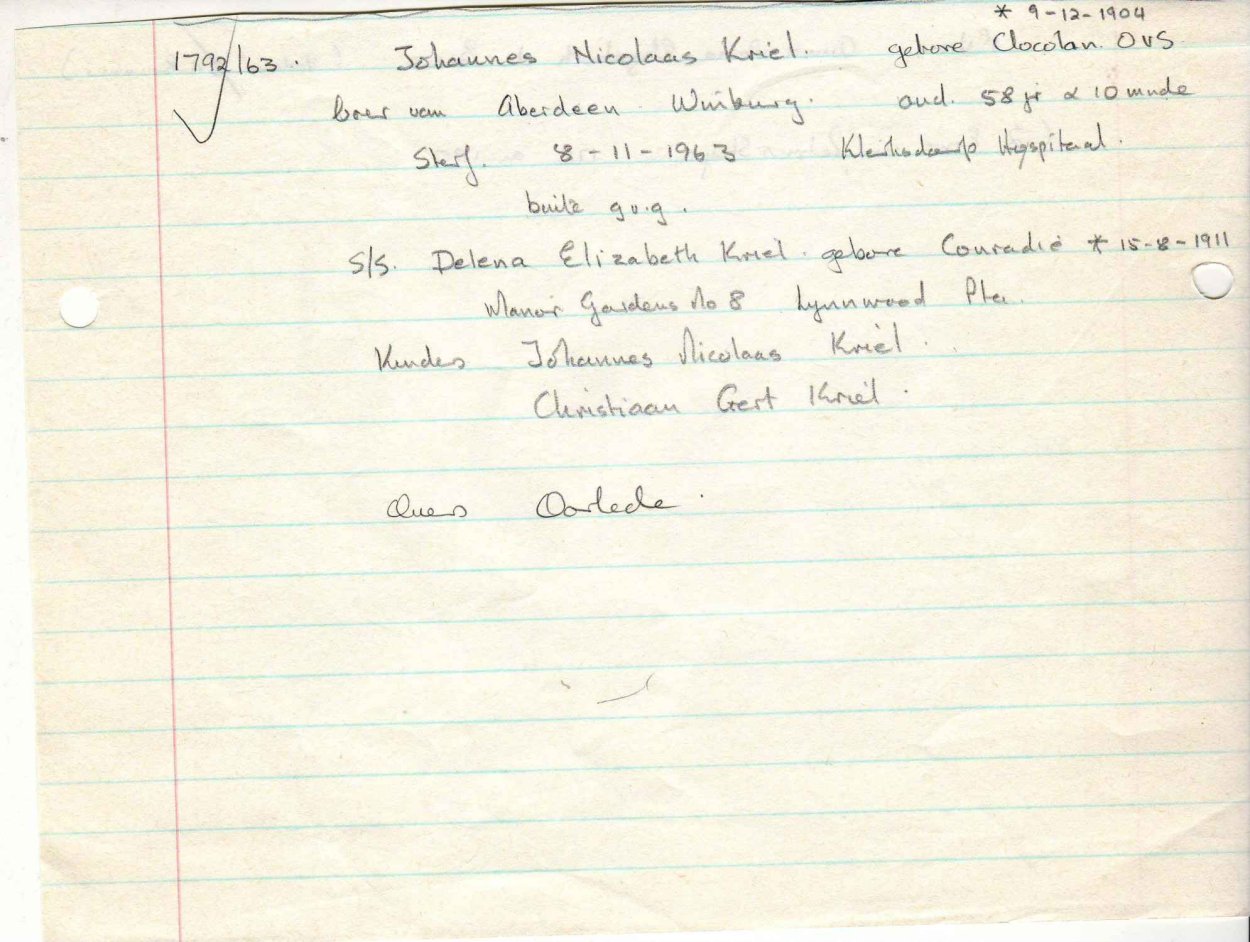 * 9-12-1904
1792/63. Johannes Nicolaas Kriel. gebore Clocolan. OVS
boer van Aberdeen Winburg. oud. 58 jr & 10 mnde
Sterf. 8-11-1963 Klerksdorp Hospitaal.
buite g v. g.
S/S. Delena Elizabeth Kriel. gebore Conradie * 15-8-1911
Manor Gardens No 8 Lynnwood Pta.
Kinders Johannes Nicolaas Kriel.
Christiaan Gert Kriel.
Ouers Oorlede.